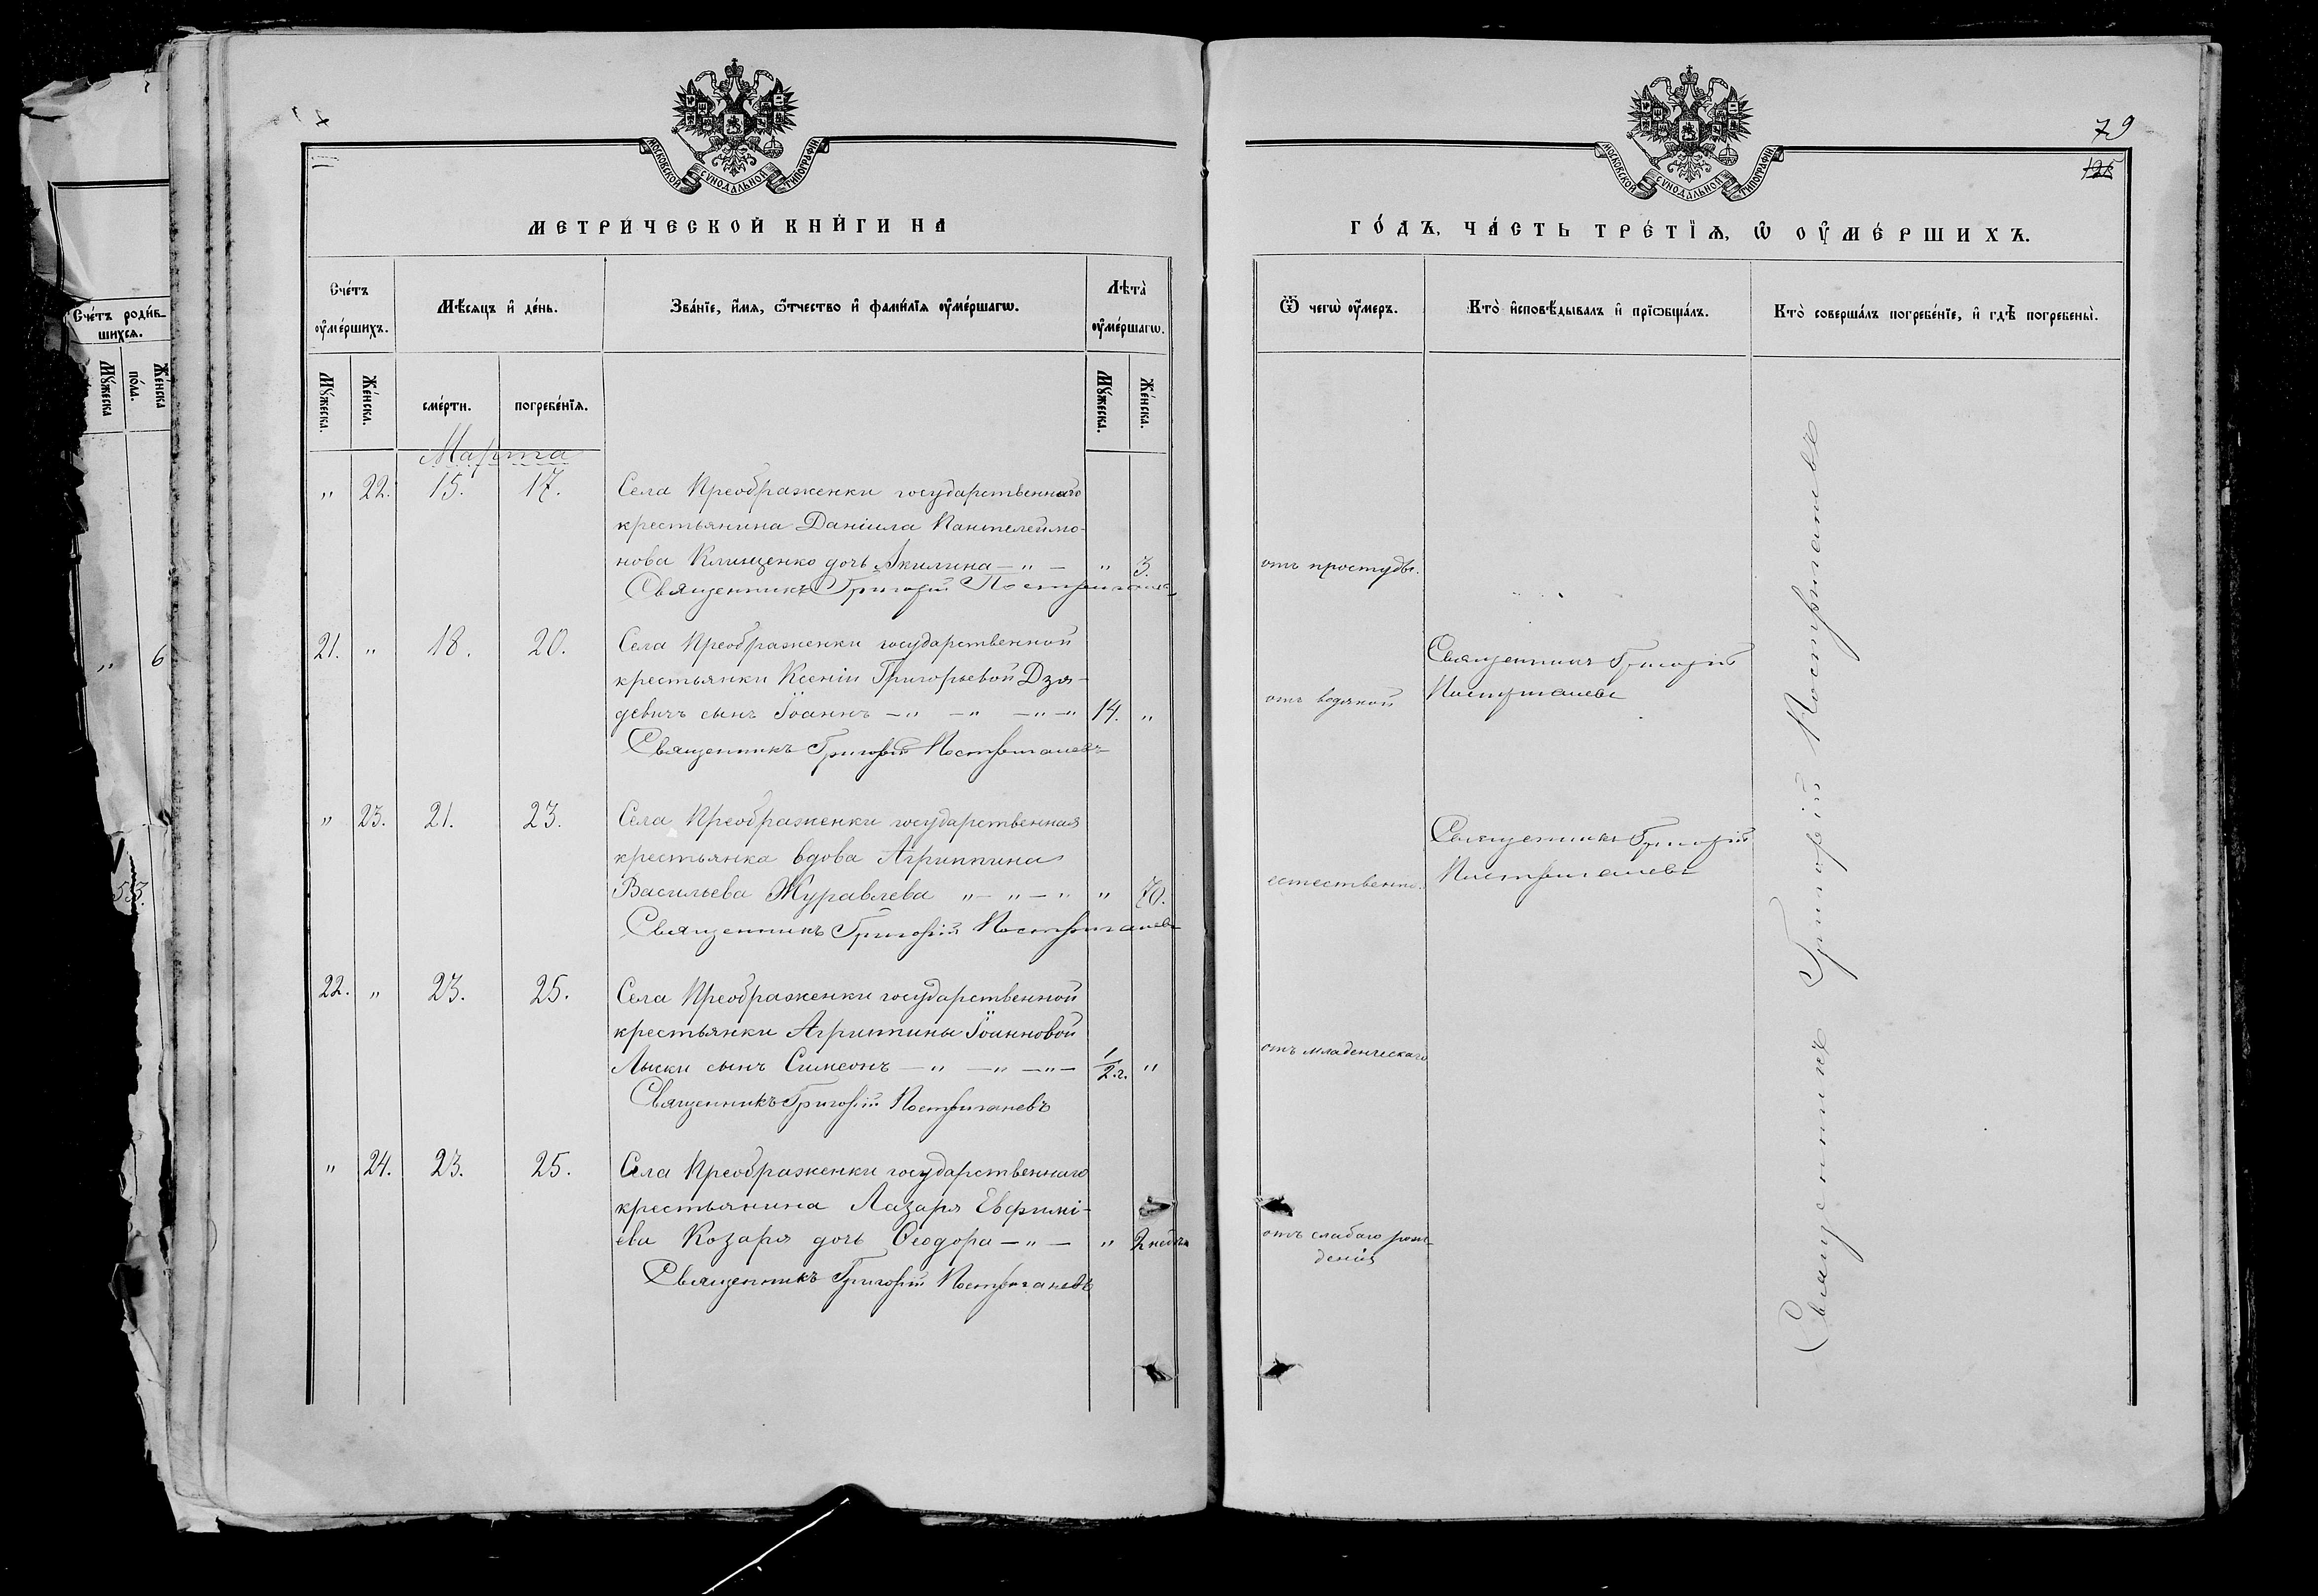 МОСКОВСКОЙ СѴНОДАЛЬНОЙ ТИПОГРАФІИ
МЕТРИ́ЧЕСКОЙ КНИ́ГИ НА
Сче́тъ ᲂумершихъ.
Мѣ́сяцъ и де́нь.
Зва́нїе, и҆́мя, ѻ҆́тчество и҆ фами́лїя ᲂу҆ме́ршагѡ.
Лѣта̀ ᲂу҆ме́ршагѡ.
Му́жеска.
Же́нска.
сме́рти.
погребе́нїя.
Му́жеска.
Же́нска.
Марта
" 22. 15. 17. Села Преображенки государственнаго
крестьянина Даніила Пантелеймо-
нова Клищенко дочь Акилина — " — " 3.
Священникъ Григорій Пострига­невъ
21. " 18. 20. Села Преображенки государственной
крестьянки Ксеніи Григорьевой Дзя-
девичъ сынъ Іоаннъ — " — " — " — " 14. "
Священникъ Григорій Постриганевъ
" 23. 21. 23. Села Преображенки государственная
крестьянка вдова Агриппина
Васильева Журавлева " — " — " " 70.
Священникъ Григорій Постриганевъ
22. " 23. 25. Села Преображенки государственной
крестьянки Агриппины Іоанновой
Лыски сынъ Симеонъ — " — " — " — 1/2 г. "
Священникъ Григорій Постриганевъ
" 24. 23. 25. Села Преображенки государственнаго
крестьянина Лазаря Евфимі-
ева Козаря дочь Ѳеодора — " — " 2 недѣли
Священникъ Григорій Постриганевъ
79
125
МОСКОВСКОЙ СѴНОДАЛЬНОЙ ТИПОГРАФІИ
ГО́ДЪ, ЧА́СТЬ ТРЕ́ТЇѦ, Ѡ҆ ОУ҆МЕ́РШИХЪ.
Ѿ чегѡ̀ ᲂу҆́меръ.
Кто̀ и҆сповѣ́дывалъ и҆ прїѻбща́лъ.
Кто̀ соверша́лъ погребе́нїе, и҆ гдѣ̀ погребены̀.
отъ простуды.
отъ водяной
Священникъ Григорій
Постриганевъ
естественно.
Священникъ Григорій
Постриганевъ
отъ младенческаго
отъ слабаго рож-
денія
Священникъ Григорій Постриганевъ
Сче́тъ роди́в-
шихся.
Му́жеска
по́ла.
Же́нска
" 6
53.